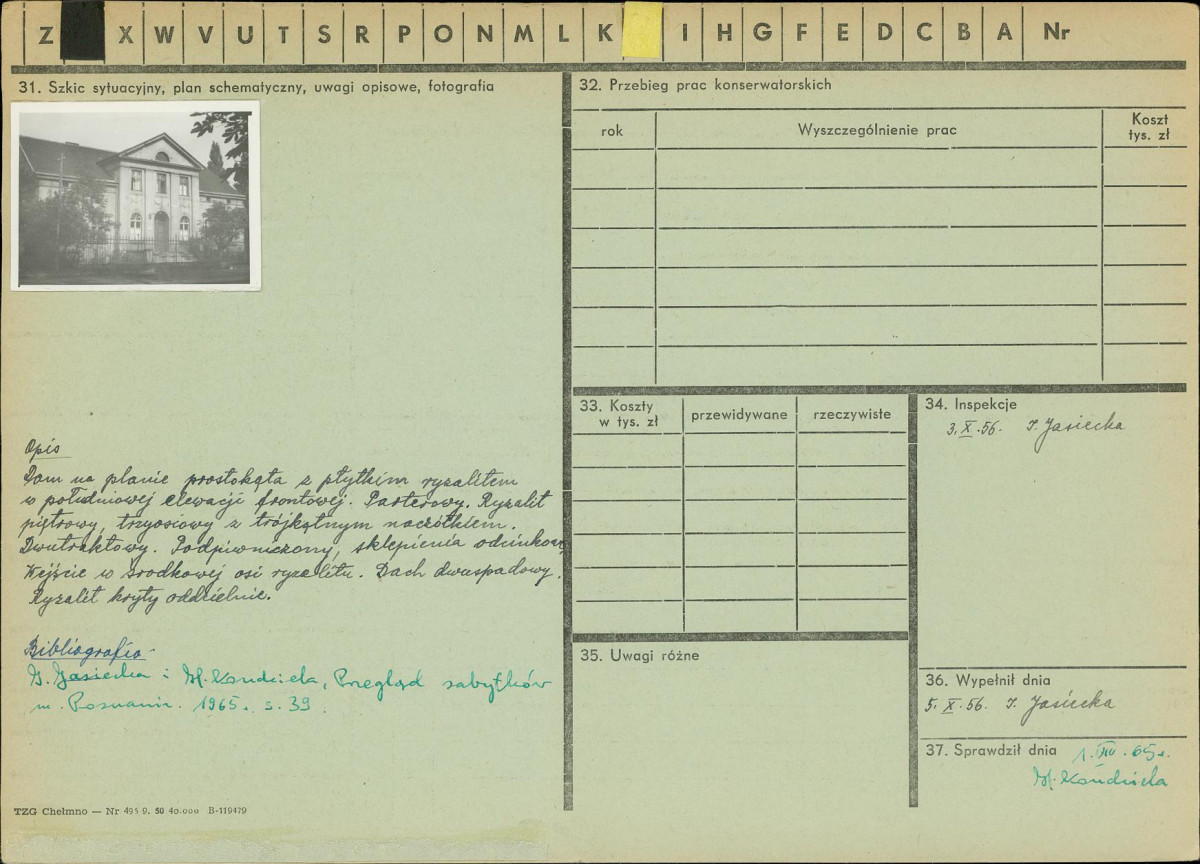 Z X W V U T S R P O N M L K I H G F E D C B A Nr
31. Szkic sytuacyjny, plan schematyczny, uwagi opisowe, fotografia
Opis
Dom na planie prostokąta z płytkim ryzalitem
w południowej elewacji frontowej. Parterowy. Ryzalit
piętrowy, trzyosiowy z trójkątnym naczółkiem.
Dwutraktowy. Podpiwniczony, sklepienia odcinkow
Wejście w środkowej osi ryzalitu. Dach dwuspadowy.
Ryzalit kryty oddzielnie.
Bibliografia
Jasiecka i M. Kondziela, Przegląd zabytków
m. Poznania. 1965. s. 39.
TZG Chełmno — Nr 495 9. 50 40.000 B-119479
32. Przebieg prac konserwatorskich
rok
Wyszczególnienie prac
Koszt
tys. zł
33. Koszty
w tys. zł
przewidywane
rzeczywiste
34. Inspekcje
3.X.56. I. Jasiecka
35. Uwagi różne
36. Wypełnił dnia
5.X.56. I. Jasiecka
37. Sprawdził dnia
1. 65r.
M. Kondziela